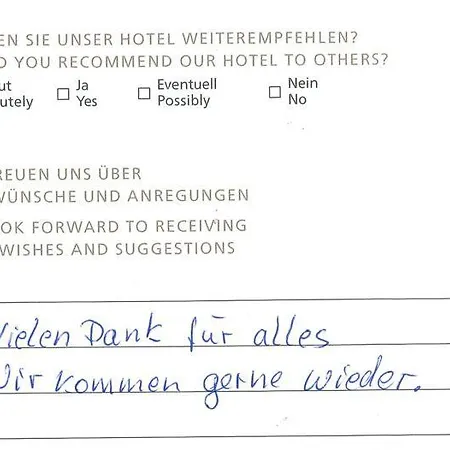 EN SIE UNSER HOTEL WEITEREMPFEHLEN?
D YOU RECOMMEND OUR HOTEL TO OTHERS?
ut Ja Eventuell Nein
utely Yes Possibly No
REUEN UNS ÜBER
WÜNSCHE UND ANREGUNGEN
OK FORWARD TO RECEIVING
WISHES AND SUGGESTIONS
Vielen Dank für alles
Wir kommen gerne wieder.